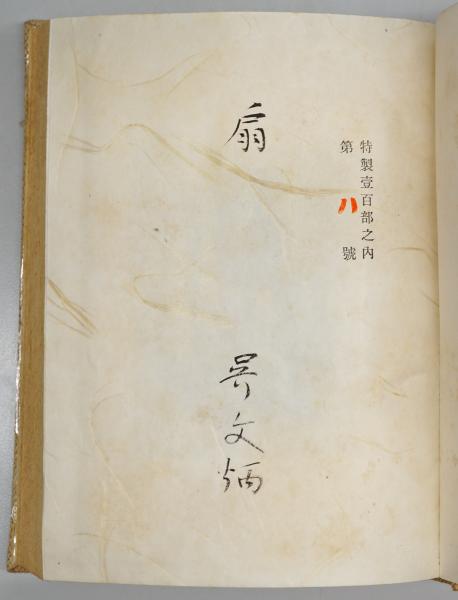 特製壹百部之內
第八號
扇
吳文炳